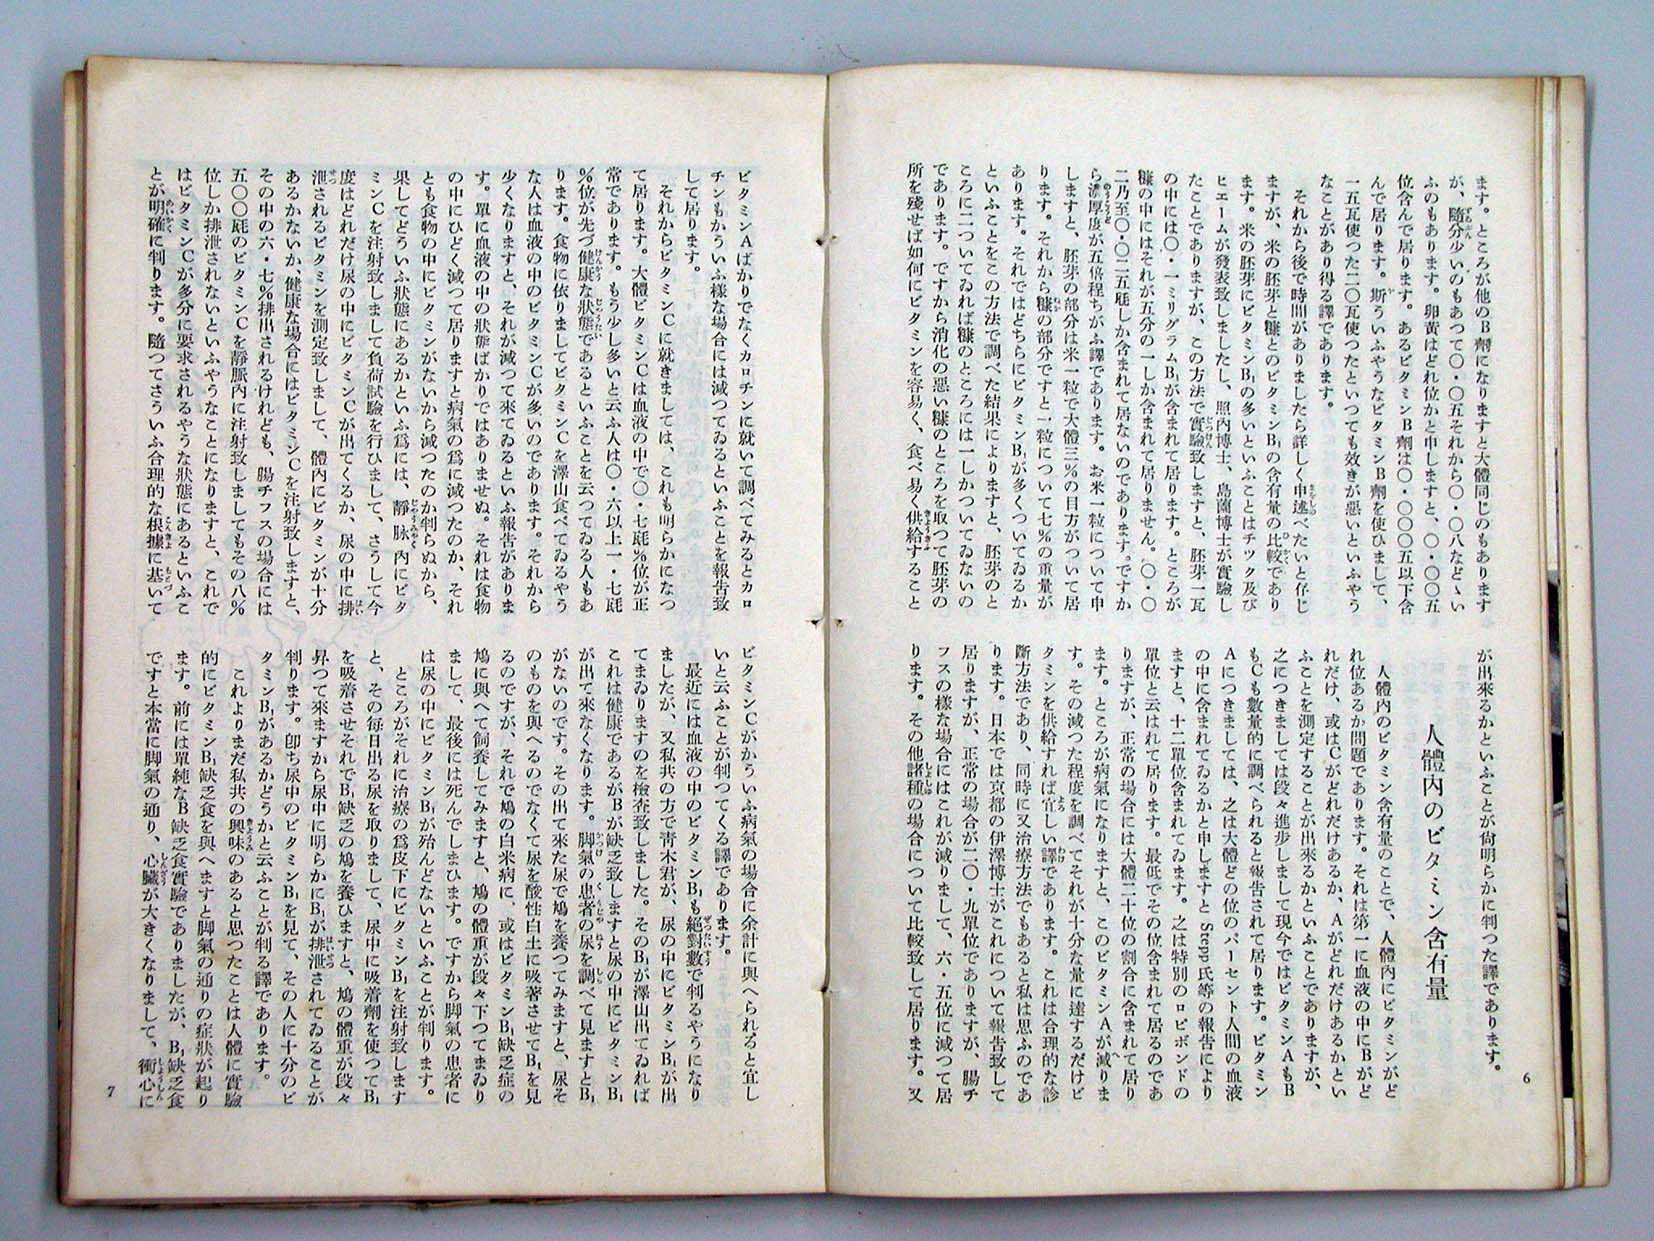 ます。ところが他のB劑になりますと大體同じのもあります
が、隨分少いのもあつて〇・〇五それから〇・〇八などゝい
ふのもあります。卵黄はどれ位かと申しますと、〇・〇〇五
位含んで居ります。あるビタミンB劑は〇・〇〇〇五以下含
んで居ります。斯ういふやうなビタミンB劑を使ひまして、
一五瓦使つた二〇瓦使つたといつても效きが悪いといふやう
なことがあり得る譯であります。
それから後で時間がありましたら詳しく申述べたいと存じ
ますが、米の胚芽と糠とのビタミンB₁の含有量の比較であり
ます。米の胚芽にビタミンB₁の多いといふことはチツク及び
ヒユームが發表致しましたし、照内博士、島薗博士が實驗し
たことでありますが、この方法で實驗致しますと、胚芽一瓦
の中には〇・一ミリグラムB₁が含まれて居ります。ところが
糠の中にはそれが五分の一しか含まれて居りません。〇・〇
二乃至〇・〇二五瓱しか含まれて居ないのであります。ですか
ら濃厚度が五倍程ちがふ譯であります。お米一粒について申
しますと、胚芽の部分は米一粒で大體三%の目方がついて居
ります。それから糠の部分ですと一粒について七%の重量が
あります。それではどちらにビタミンB₁が多くついてゐるか
といふことをこの方法で調べた結果によりますと、胚芽のと
ころに二ついてゐれば糠のところには一しかついてゐないの
であります。ですから消化の悪い糠のところを取つて胚芽の
所を殘せば如何にビタミンを容易く、食べ易く供給すること
が出來るかといふことが尙明らかに判つた譯であります。
人體内のビタミン含有量
人體内のビタミン含有量のことで、人體内にビタミンがど
れ位あるか問題であります。それは第一に血液の中にBがど
れだけ、或はCがどれだけあるか、Aがどれだけあるかとい
ふことを測定することが出來るかといふことでありますが、
之につきましては段々進歩しまして現今ではビタミンAもB
もCも數量的に調べられると報告されて居ります。ビタミン
Aにつきましては、之は大體どの位のパーセント人間の血液
の中に含まれてゐるかと申しますと Stepp 氏等の報告により
ますと、十二單位含まれてゐます。之は特別のロビボンドの
單位と云はれて居ります。最低でその位含まれて居るのであ
りますが、正常の場合には大體二十位の割合に含まれて居り
ます。ところが病氣になりますと、このビタミンAが減りま
す。その減つた程度を調べてそれが十分な量に達するだけビ
タミンを供給すれば宜しい譯であります。これは合理的な診
斷方法であり、同時に又治療方法でもあると私は思ふのであ
ります。日本では京都の伊澤博士がこれについて報告致して
居りますが、正常の場合が二〇・九單位でありますが、腸チ
フスの樣な場合にはこれが減りまして、六・五位に減つて居
ります。その他諸種の場合について比較致して居ります。又
6
ビタミンAばかりでなくカロチンに就いて調べてみるとカロ
チンもかういふ樣な場合には減つてゐるといふことを報告致
して居ります。
それからビタミンCに就きましては、これも明らかになつ
て居ります。大體ビタミンCは血液の中で〇・七瓱%位が正
常であります。もう少し多いと云ふ人は〇・六以上一・七瓱
%位が先づ健康な狀態であるといふことを云つてゐる人もあ
ります。食物に依りましてビタミンCを澤山食べてゐるやう
な人は血液の中のビタミンCが多いのであります。それから
少くなりますと、それが減つて來てゐるといふ報告がありま
す。單に血液の中の狀態ばかりではありませぬ。それは食物
の中にひどく減つて居りますと病氣の爲に減つたのか、それ
とも食物の中にビタミンがないから減つたのか判らぬから、
果してどういふ狀態にあるかといふ爲には、靜脉内にビタ
ミンCを注射致しまして負荷試驗を行ひまして、さうして今
度はどれだけ尿の中にビタミンCが出てくるか、尿の中に排
泄されるビタミンを測定致しまして、體内にビタミンが十分
あるかないか、健康な場合にはビタミンCを注射致しますと、
その中の六・七%排出されるけれども、腸チフスの場合には
五〇〇瓱のビタミンCを靜脈内に注射致しましてもその八%
位しか排泄されないといふやうなことになりますと、これで
はビタミンCが多分に要求されるやうな狀態にあるといふこ
とが明確に判ります。隨つてさういふ合理的な根據に基いて
ビタミンCがかういふ病氣の場合に余計に與へられると宜し
いと云ふことが判つてくる譯であります。
最近には血液の中のビタミンB₁も絕對數で判るやうになり
ましたが、又私共の方で靑木君が、尿の中にビタミンB₁が出
てまゐりますのを檢査致しました。そのB₁が澤山出てゐれば
これは健康であるがBが缺乏致しますと尿の中にビタミンB₁
が出て來なくなります。脚氣の患者の尿を調べて見ますとB₁
がないのです。その出て來た尿で鳩を養つてみますと、尿そ
のものを與へるのでなくて尿を酸性白土に吸着させてB₁を見
るのですが、それで鳩の白米病に、或はビタミンB₁缺乏症の
鳩に與へて飼養してみますと、鳩の體重が段々下つてまゐり
まして、最後には死んでしまひます。ですから脚氣の患者に
は尿の中にビタミンB₁が殆んどないといふことが判ります。
ところがそれに治療の爲皮下にビタミンB₁を注射致します
と、その毎日出る尿を取りまして、尿中に吸着劑を使つてB₁
を吸着させそれでB₁缺乏の鳩を養ひますと、鳩の體重が段々
昇つて來ますから尿中に明らかにB₁が排泄されてゐることが
判ります。卽ち尿中のビタミンB₁を見て、その人に十分のビ
タミンB₁があるかどうかと云ふことが判る譯であります。
これよりまだ私共の興味のあると思つたことは人體に實驗
的にビタミンB₁缺乏食を與へますと脚氣の通りの症狀が起り
ます。前には單純なB缺乏食實驗でありましたが、B₁缺乏食
ですと本當に脚氣の通り、心臟が大きくなりまして、衝心に
7